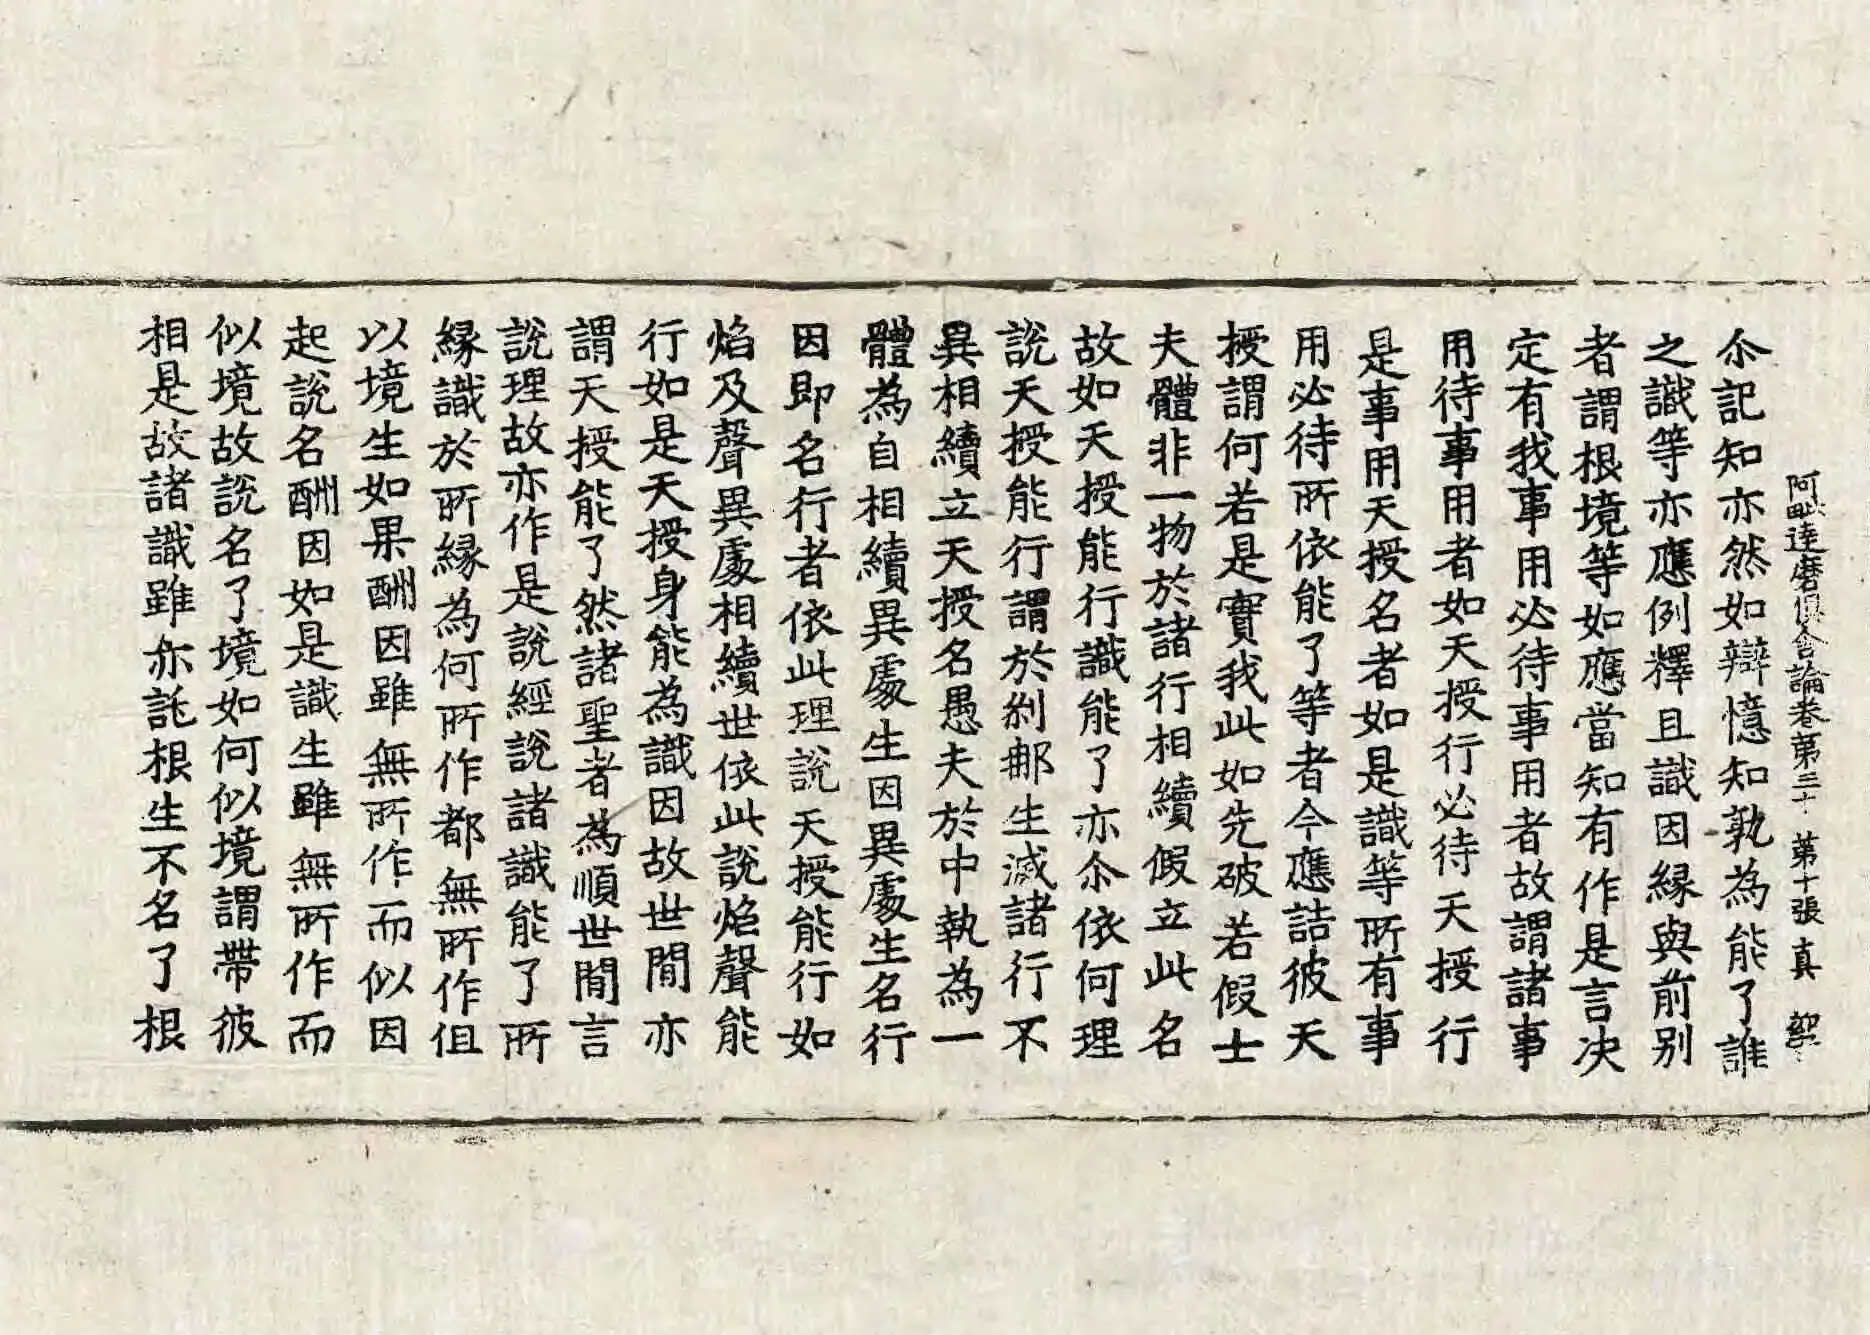 阿毗達磨俱舍論卷第三十 第十張 真
尒記知亦然如辯憶知孰為能了誰
之識等亦應例釋且識因緣與前别
者謂根境等如應當知有作是言决
定有我事用必待事用者故謂諸事
用待事用者如天授行必待天授行
是事用天授名者如是識等所有事
用必待所依能了等者今應詰彼天
授謂何若是實我此如先破若假士
夫體非一物於諸行相續假立此名
故如天授能行識能了亦尒依何理
說天授能行謂於剎那生滅諸行不
異相續立天授名愚夫於中執為一
體為自相續異處生因異處生名行
因即名行者依此理說天授能行如
焰及聲異處相續世依此說焰聲能
行如是天授身能為識因故世間亦
謂天授能了然諸聖者為順世間言
說理故亦作是說經說諸識能了所
緣識於所緣為何所作都無所作但
以境生如果酬因雖無所作而似因
起說名酬因如是識生雖無所作而
似境故說名了境如何似境謂帶彼
相是故諸識雖亦託根生不名了根